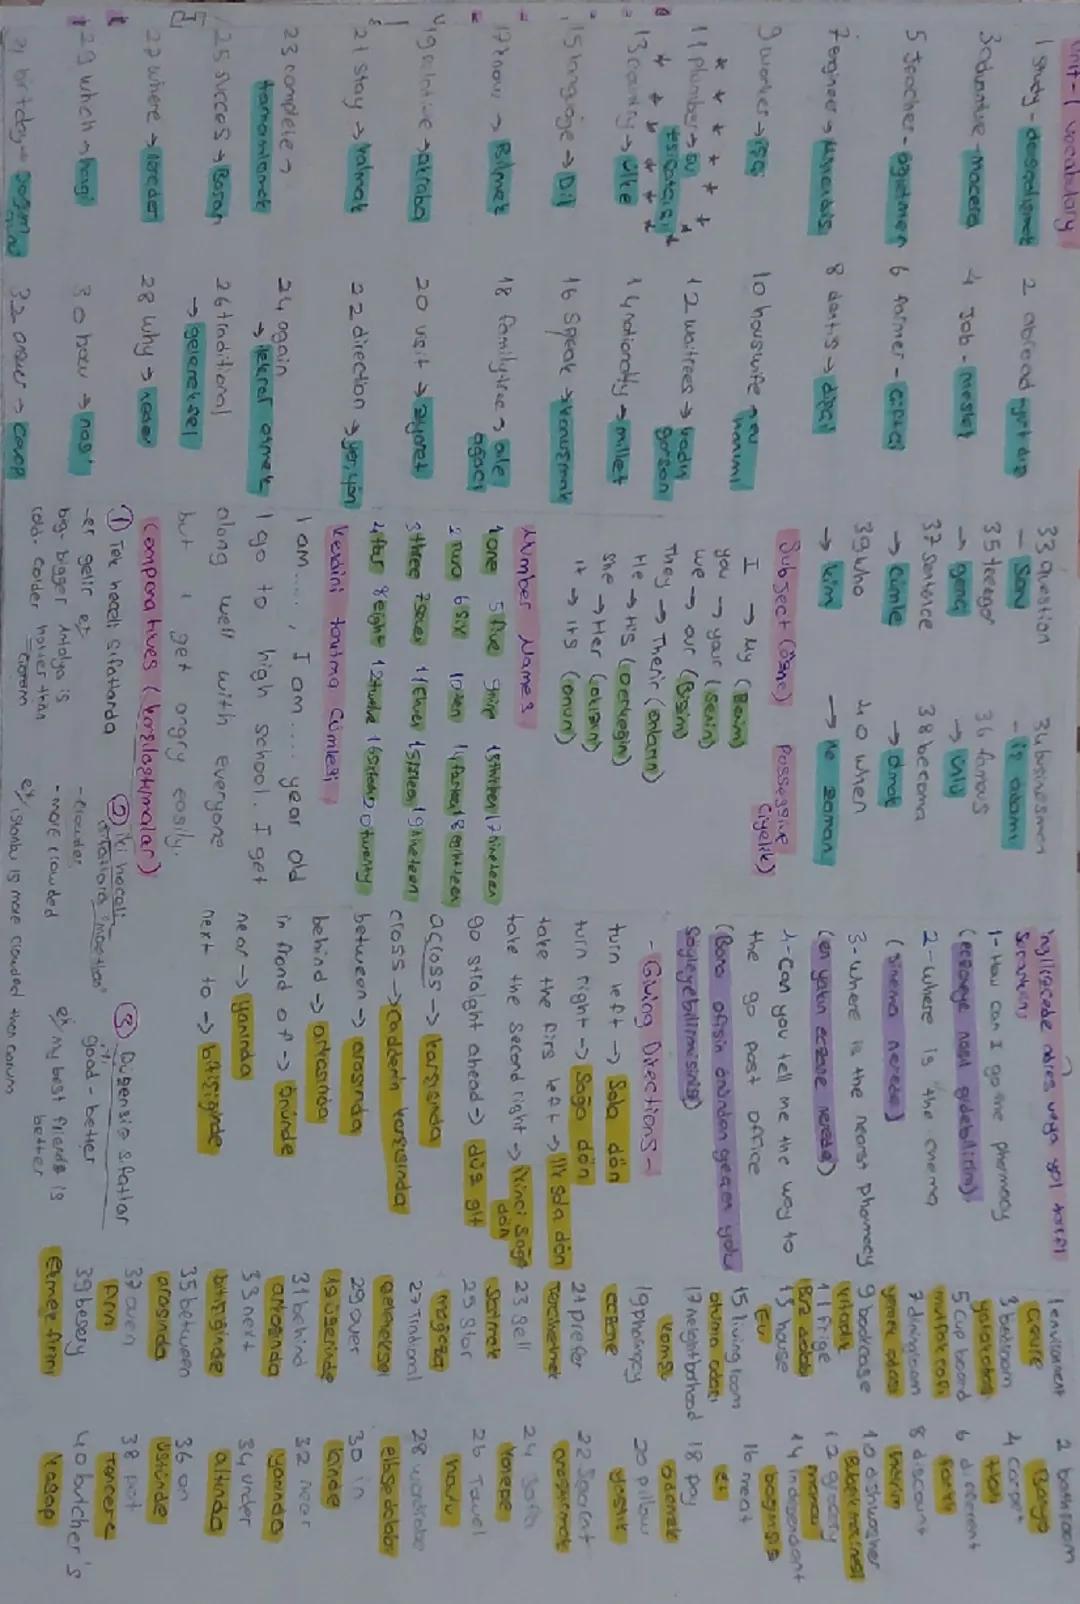 Unit-1 vocabulary
1 study-
2 abroad-yurt dışı
3 adventure-macera
4 Job-meslek
5 teacher-öğretmen
6 farmer-çiftçi
7 engineer→Mühendis
8 dentis→dişçi
9 worker→işçi
10 houswife→ev hanımı
11 plumber→su tesisatçısı
12 waitrees→kadın garson
13 country→ülke
14 nationality→millet
15 language→Dil
16 speak→konuşmak
17 know→Bilmek
18 family tree→aile ağacı
19 relative→akraba
20 visit→ziyaret
21 stay→kalmak
22 direction→yer, yön
23 complete→
tamamlamak
24 again
→tekrar etmek
25 succes→Başarı
26 traditional
→geleneksel
27 where→nereden
28 why→neden
29 which→hangi
30 how→nasıl
32 answer→cevap
33 question
- Soru
34 businesman
- iş adamı
35 teeage
→genç
36 famous
→ünlü
37 sentence
→cümle
38 becoma
→olmak
39 who
→kim
40 when
→Ne zaman
Subject (Özne) Possessive
(iyelik)
I → My (Benim)
you → your (senin)
we → our (Bizim)
They → Their (onların)
He → His (o erkeğin)
She → Her (o kızın)
it → its (onun)
Number Names
1 one 5 five 9 nine
2 two 6 six 10 ten
3 three 7 seven
4 four 8 eight 20 twenty
Kendini tanıtma Cümlesi
I am ...., I am .... year old
I go to high school. I get
along well with everyone
but i get angry easily.
Comparatives (karşılaştırmalar)
① Tek heceli sıfatlarda
-er gelir
big- bigger Antalya is
cold- colder hotter than
Çorum
② iki heceli
sıfatlarda "more than"
- clowder
- more crowded
ex/ istanbul is more clowded than corum
③ Düzensiz sıfatlar
good - better
ex/ my best friends is
better
ingilizcede adres veya yol tarifi
1- How can I go the pharmacy
(eczaneye nasıl gidebilirim)
2- where is the cinema
(sinema nerede)
3- where is the nearest pharmacy
(en yakın eczane nerede)
4- Can you tell me the way to
the go post office
(Bana ofisin önünden geçen yolu
söyleyebilirmisiniz)
- Giving Directions -
turn left → Sola dön
turn right → Sağa dön
take the firs left → ilk sola dön
take the second right → ikinci sağa
dön
go straight ahead → düz git
across → karşısında
cross → caddenin karşısında
between → arasında
behind → arkasında
in frond of → Önünde
near → yanında
next to → bitişiğinde
1 enviroment
Çevre
2 bathroom
Banyo
3 bedroom
yatak odası
4 carpet
Halı
5 cup board
6 different
farklı
7 diningroom
yemek odası
8 discount
indirim
9 bookcase
kitaplık
10 dishwasher
Bulaşık makinesi
11 frige
Buz dolabı
12 grocery
manav
13 house
Ev
14 independent
bağımsız
15 livingroom
oturma odası
16 meat
et
17 neighborhood
komşu
18 pay
ödemek
19 pharmacy
eczane
20 pillow
yastık
21 prefer
Tercih etmek
22
23 sell
Satmak
24
25 Stor
mağaza
26 Towel
havlu
27
geleneksel
28 wardrobe
elbise dolabı
29 over
üzerinde
30 in
içinde
31 behind
arkasında
32 near
yanında
33 next
bitişiğinde
34 under
altında
35 between
arasında
36 on
üstünde
37 oven
fırın
38 pot
Tencere
39 bakery
Ekmek fırını
40 butcher's
kasap